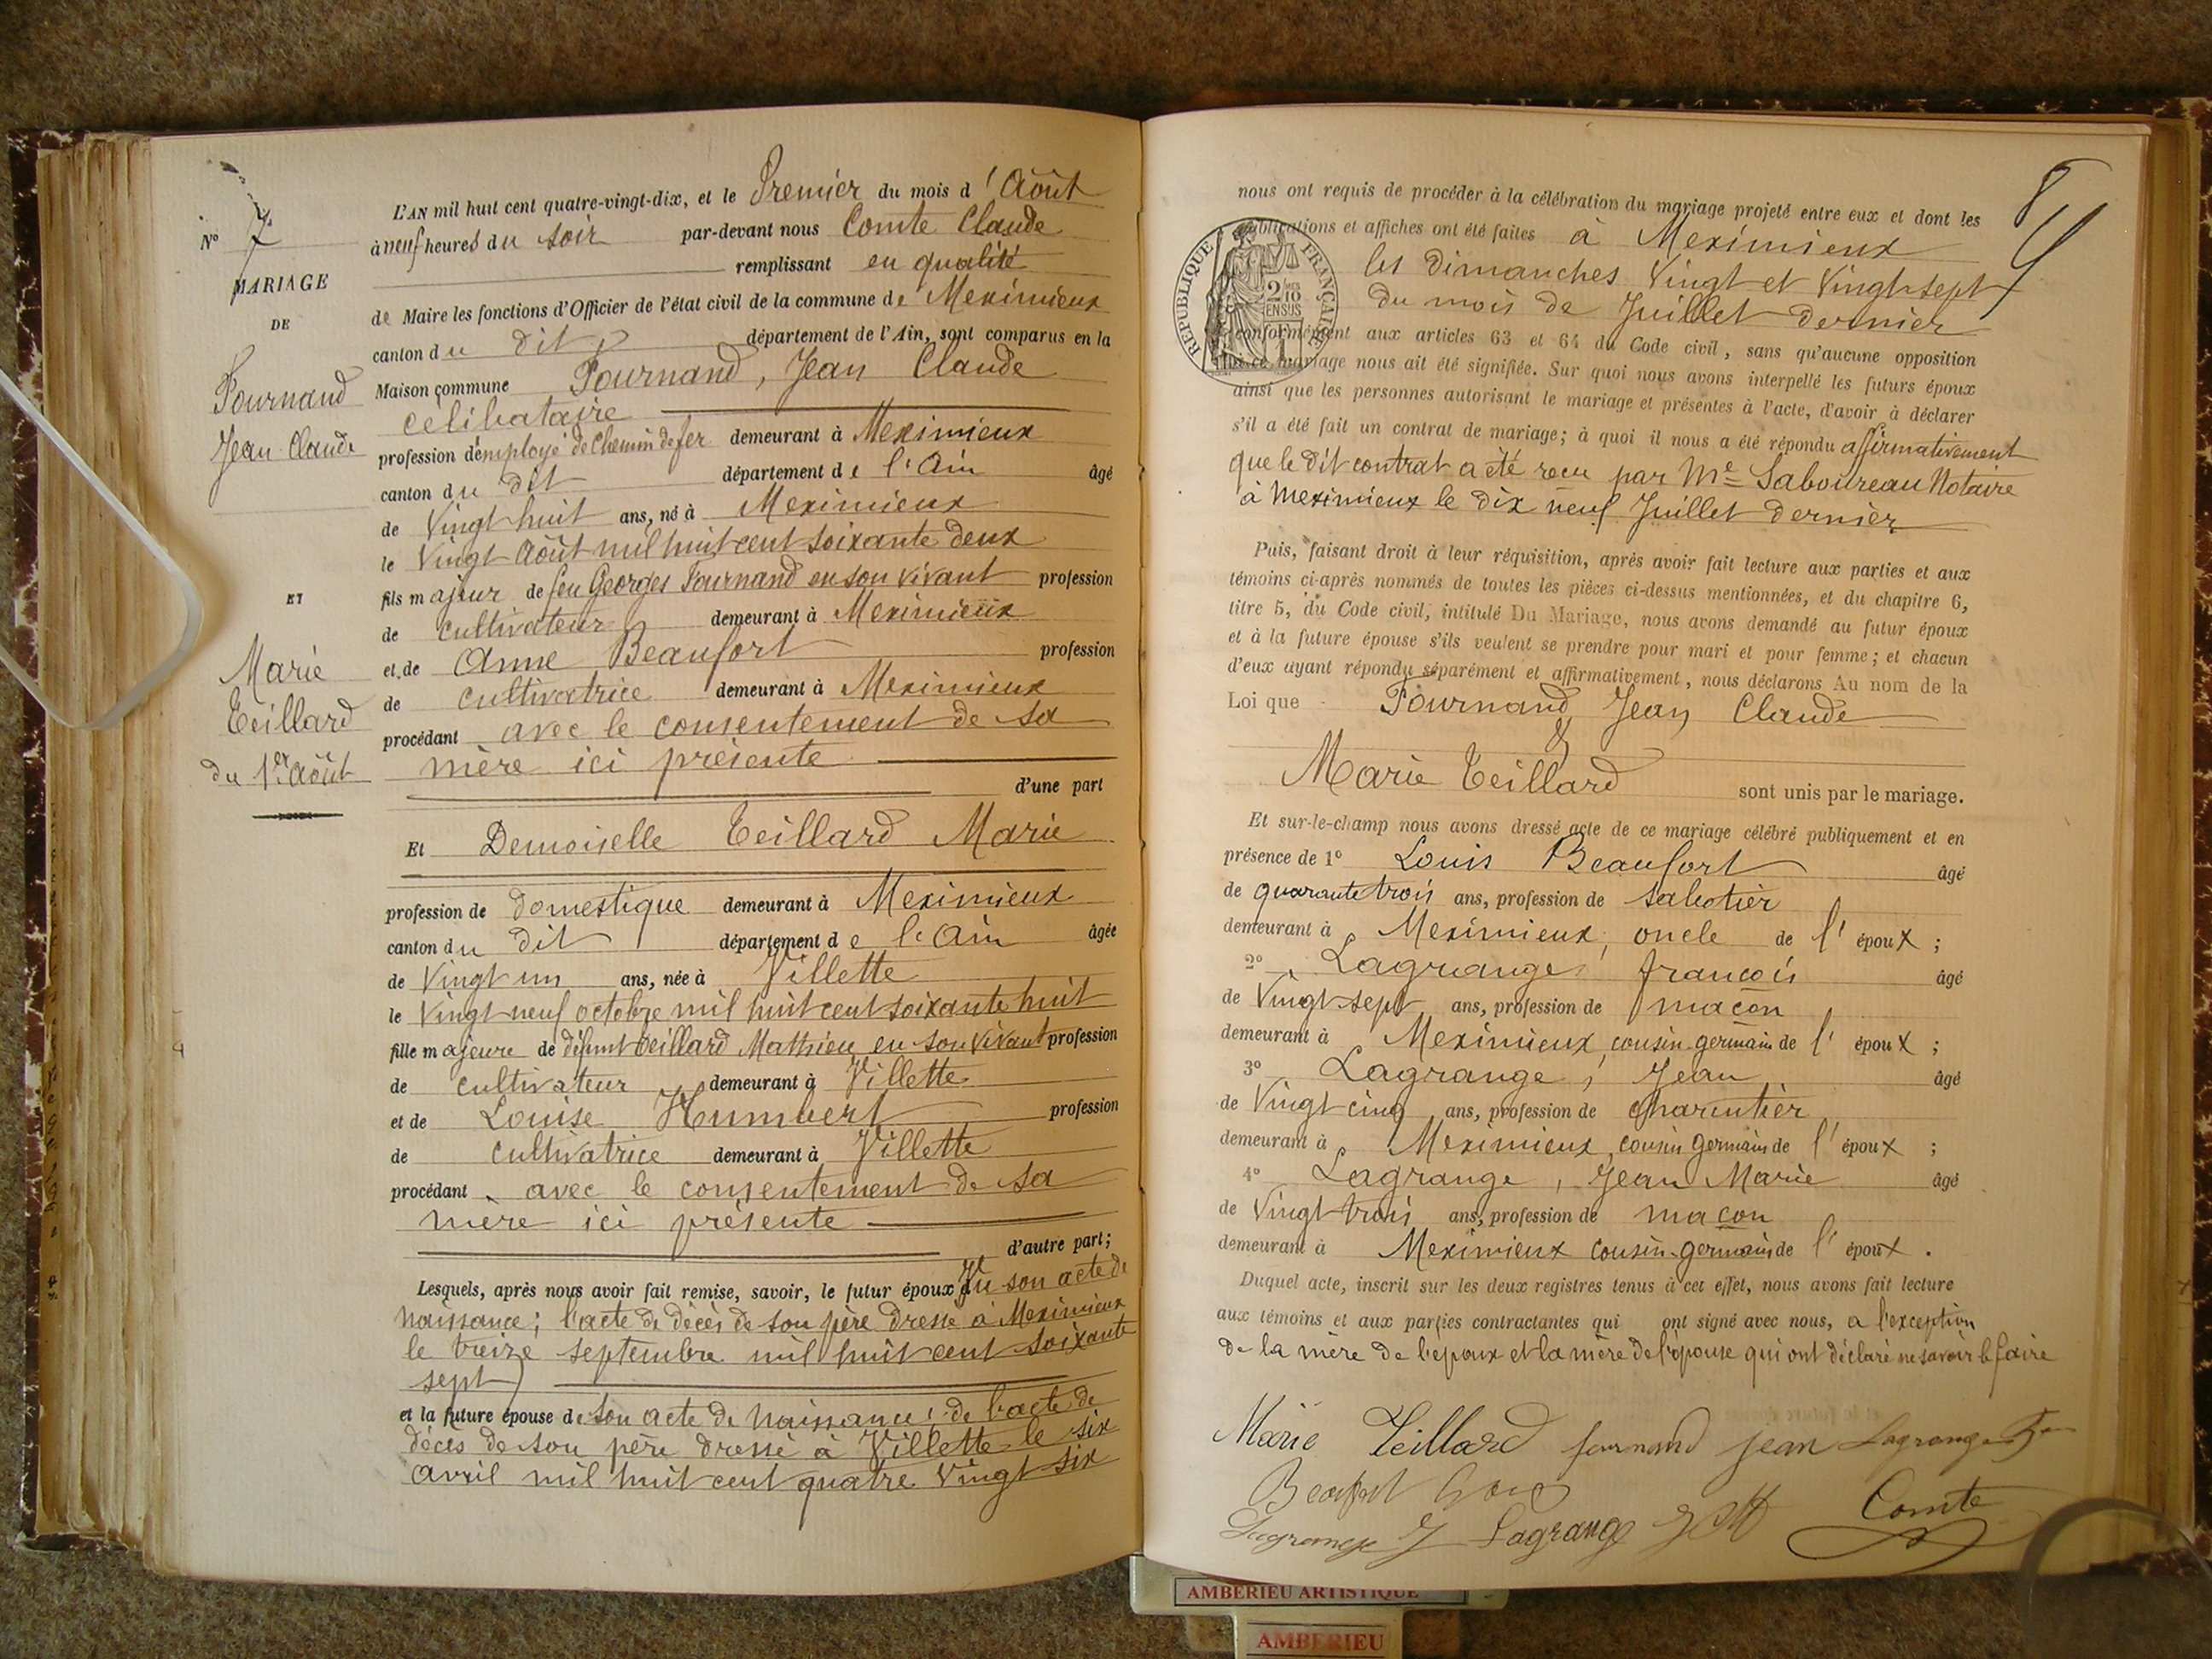 N° 7
MARIAGE
DE
Fournand
Jean Claude
ET
Marie
Teillard
du 1er Août
L'AN mil huit cent quatre-vingt-dix, et le Premier du mois d'Août
à neuf heures du soir par-devant nous Comte Claude
remplissant en qualité
de Maire les fonctions d'Officier de l'état civil de la commune de Meximieux
canton du dit département de l'Ain, sont comparus en la
Maison commune Fournand, Jean Claude
célibataire
profession d'employé de Chemin de fer demeurant à Meximieux
canton du dit département de l'Ain âgé
de Vingt huit ans, né à Meximieux
le Vingt Août mil huit cent soixante deux
fils majeur de feu Georges Fournand en son vivant profession
de cultivateur demeurant à Meximieux
et de Anne Beaufort profession
de cultivatrice demeurant à Meximieux
procédant avec le consentement de sa
mère ici présente
d'une part
Et Demoiselle Teillard Marie
profession de domestique demeurant à Meximieux
canton du dit département de l'Ain âgée
de Vingt un ans, née à Villette
le Vingt neuf octobre mil huit cent soixante huit
fille majeure de défunt Teillard Mathieu en son vivant profession
de cultivateur demeurant à Villette
et de Louise Humbert profession
de cultivatrice demeurant à Villette
procédant avec le consentement de sa
mère ici présente
d'autre part;
Lesquels, après nous avoir fait remise, savoir, le futur époux de son acte de
naissance; l'acte de décès de son père dressé à Meximieux
le treize septembre mil huit cent soixante
sept
et la future épouse de son acte de naissance; de l'acte de
décès de son père dressé à Villette le six
avril mil huit cent quatre Vingt six
8
nous ont requis de procéder à la célébration du mariage projeté entre eux et dont les
publications et affiches ont été faites à Meximieux
les dimanches Vingt et Vingt sept
du mois de Juillet dernier
RÉPUBLIQUE FRANÇAISE
conformément aux articles 63 et 64 du Code civil, sans qu'aucune opposition
mariage nous ait été signifiée. Sur quoi nous avons interpellé les futurs époux
ainsi que les personnes autorisant le mariage et présentes à l'acte, d'avoir à déclarer
s'il a été fait un contrat de mariage; à quoi il nous a été répondu affirmativement
que le dit contrat a été reçu par Me Saboureau Notaire
à Meximieux le dix neuf Juillet dernier
Puis, faisant droit à leur réquisition, après avoir fait lecture aux parties et aux
témoins ci-après nommés de toutes les pièces ci-dessus mentionnées, et du chapitre 6,
titre 5, du Code civil, intitulé Du Mariage, nous avons demandé au futur époux
et à la future épouse s'ils veulent se prendre pour mari et pour femme; et chacun
d'eux ayant répondu séparément et affirmativement, nous déclarons Au nom de la
Loi que Fournand Jean Claude
&
Marie Teillard sont unis par le mariage.
Et sur-le-champ nous avons dressé acte de ce mariage célébré publiquement et en
présence de 1° Louis Beaufort âgé
de quarante trois ans, profession de sabotier
demeurant à Meximieux, oncle de l'époux;
2° Lagrange, françois âgé
de Vingt sept ans, profession de maçon
demeurant à Meximieux, cousin germain de l'époux;
3° Lagrange, Jean âgé
de Vingt cinq ans, profession de charpentier
demeurant à Meximieux, cousin germain de l'époux;
4° Lagrange, Jean Marie âgé
de Vingt trois ans, profession de maçon
demeurant à Meximieux cousin-germain de l'époux.
Duquel acte, inscrit sur les deux registres tenus à cet effet, nous avons fait lecture
aux témoins et aux parties contractantes qui ont signé avec nous, a l'exception
de la mère de l'époux et la mère de l'épouse qui ont déclaré ne savoir le faire
Marie Teillard fournand jean Lagrange
Beaufort
Lagrange J Lagrange Comte
AMBERIEU ARTISTIQUE
AMBERIEU